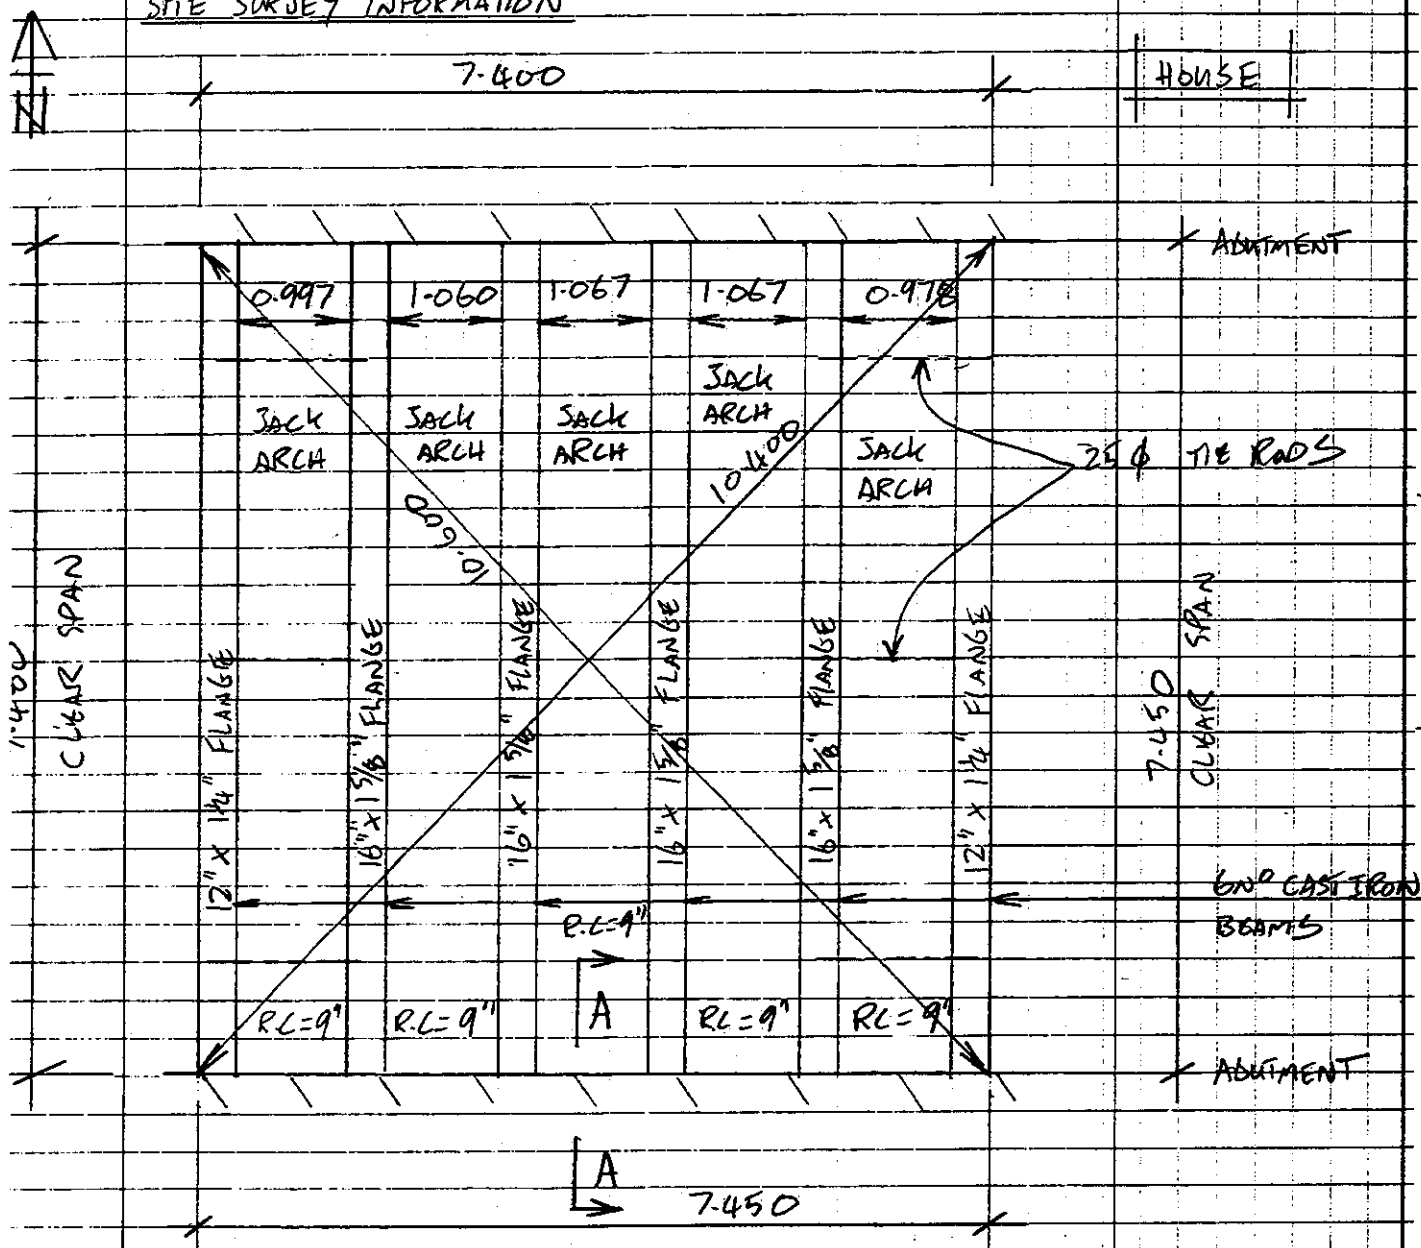 SITE SURVEY INFORMATION
N
7.400
HOUSE
ABUTMENT
0.997
1.060
1.067
1.067
0.978
JACK
ARCH
JACK
ARCH
JACK
ARCH
JACK
ARCH
JACK
ARCH
25 ϕ TIE RODS
10.600
10.400
CLEAR SPAN
7.450
CLEAR SPAN
12" x 1¼" FLANGE
16" x 1 5/8" FLANGE
16" x 1 5/8" FLANGE
16" x 1 5/8" FLANGE
16" x 1 5/8" FLANGE
12" x 1¼" FLANGE
6Nº CAST IRON
BEAMS
R.C=9"
A
R.C=9"
R.C=9"
RC=9"
RC=9"
ABUTMENT
A
7.450